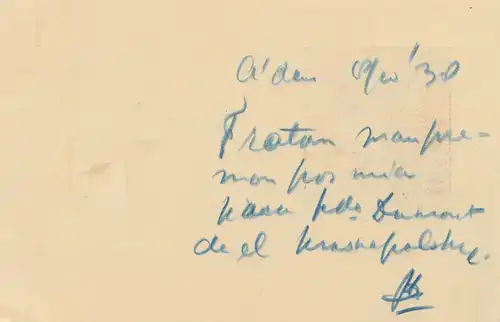 A'dam '30
Fratan manpre-
mon por mia
kara Dumont
de el Krasnapolsky.